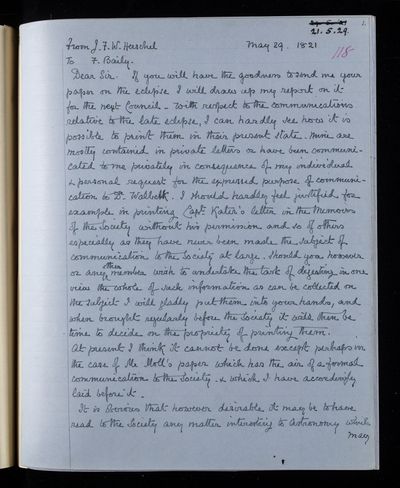 1.
21.5.29.
From J.F.W. Herschel May 29. 1821
118
To F. Baily.
Dear Sir. If you will have the goodness to send me your
paper on the eclipse I will draw up my report on it
for the next Council - With respect to the communications
relative to the late eclipse, I can hardly see how it is
possible to print them in their present state. Mine are
mostly contained in private letters or have been communi-
cated to me privately in consequence of my individual
& personal request for the expressed purpose of communi-
cation to Dr. Wallbeck. I should hardly feel justified for
example in printing Capt. Kater's letter in the Memoirs
of the Society without his permission and so of others
especially as they have never been made the subject of
communication to the Society at large. Should you however
or any other member wish to undertake the task of digesting in one
view the whole of such information as can be collected on
the subject I will gladly put them into your hands, and
when brought regularly before the Society it will then be
time to decide on the propriety of printing them.
At present I think it cannot be done except perhaps in
the case of Mr Moll's paper which has the air of a formal
communication to the Society - & which I have accordingly
laid before it.
It is obvious that however desirable it may be to have
read to the Society any matter interesting to Astronomy which
may